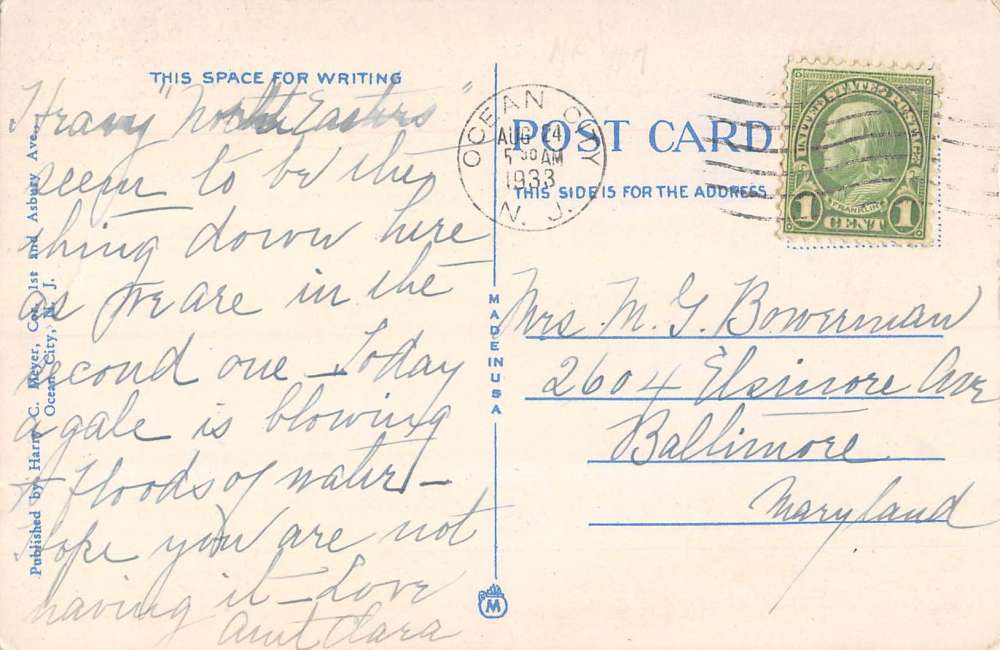 THIS SPACE FOR WRITING
Heavy "North Easters"
seem to be the
thing down here
as we are in the
second one – Today
a gale is blowing
+ floods of water –
hope you are not
having it – Love
Aunt Clara
Published by Harry C. Meyer, Cor. 1st and Asbury Ave.,
Ocean City, N. J.
MADE IN USA
M
OCEAN CITY
AUG 24
5 30 AM
1933
N. J.
POST CARD
THIS SIDE IS FOR THE ADDRESS
UNITED STATES POSTAGE
FRANKLIN
1 CENT 1
Mrs. M. G. Bowerman
2604 Elsinore Ave
Baltimore
Maryland